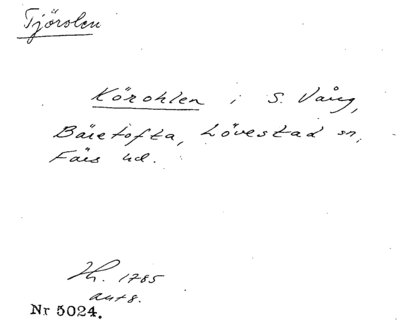 Tjörolen
Körohlen i S. Vång,
Bäretofta, Lövestad sn,
Färs hd.
Kh. 1785
ant 8.
Nr 5024.